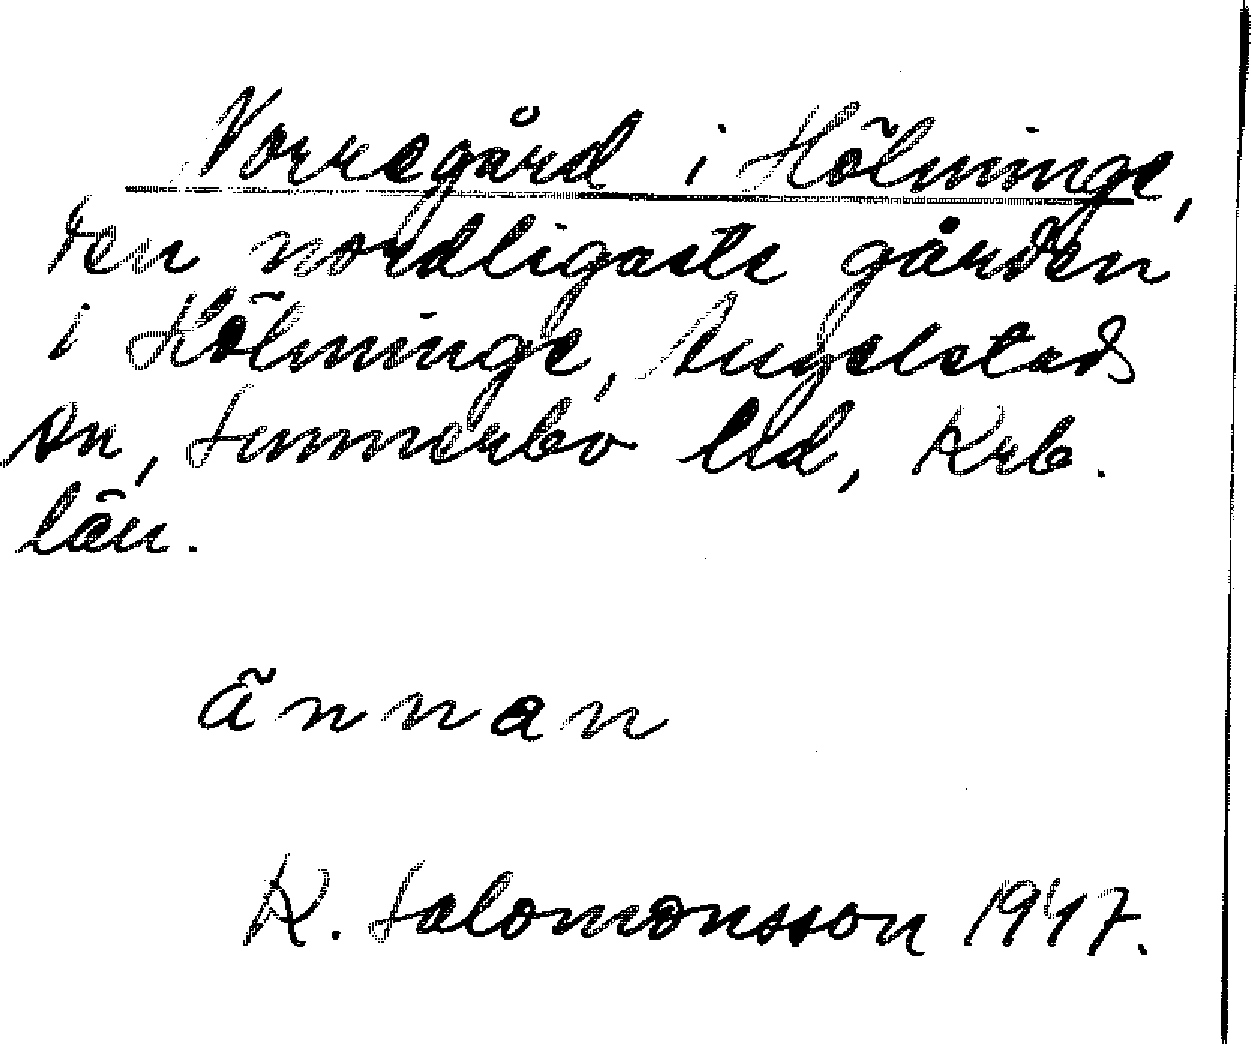 Norregård i Hölminge,
den nordligaste gården
i Hölminge, Angelstads
sn, Sunnerbo hd, Krb.
län.
Ännan
K. Salomonsson 1947.